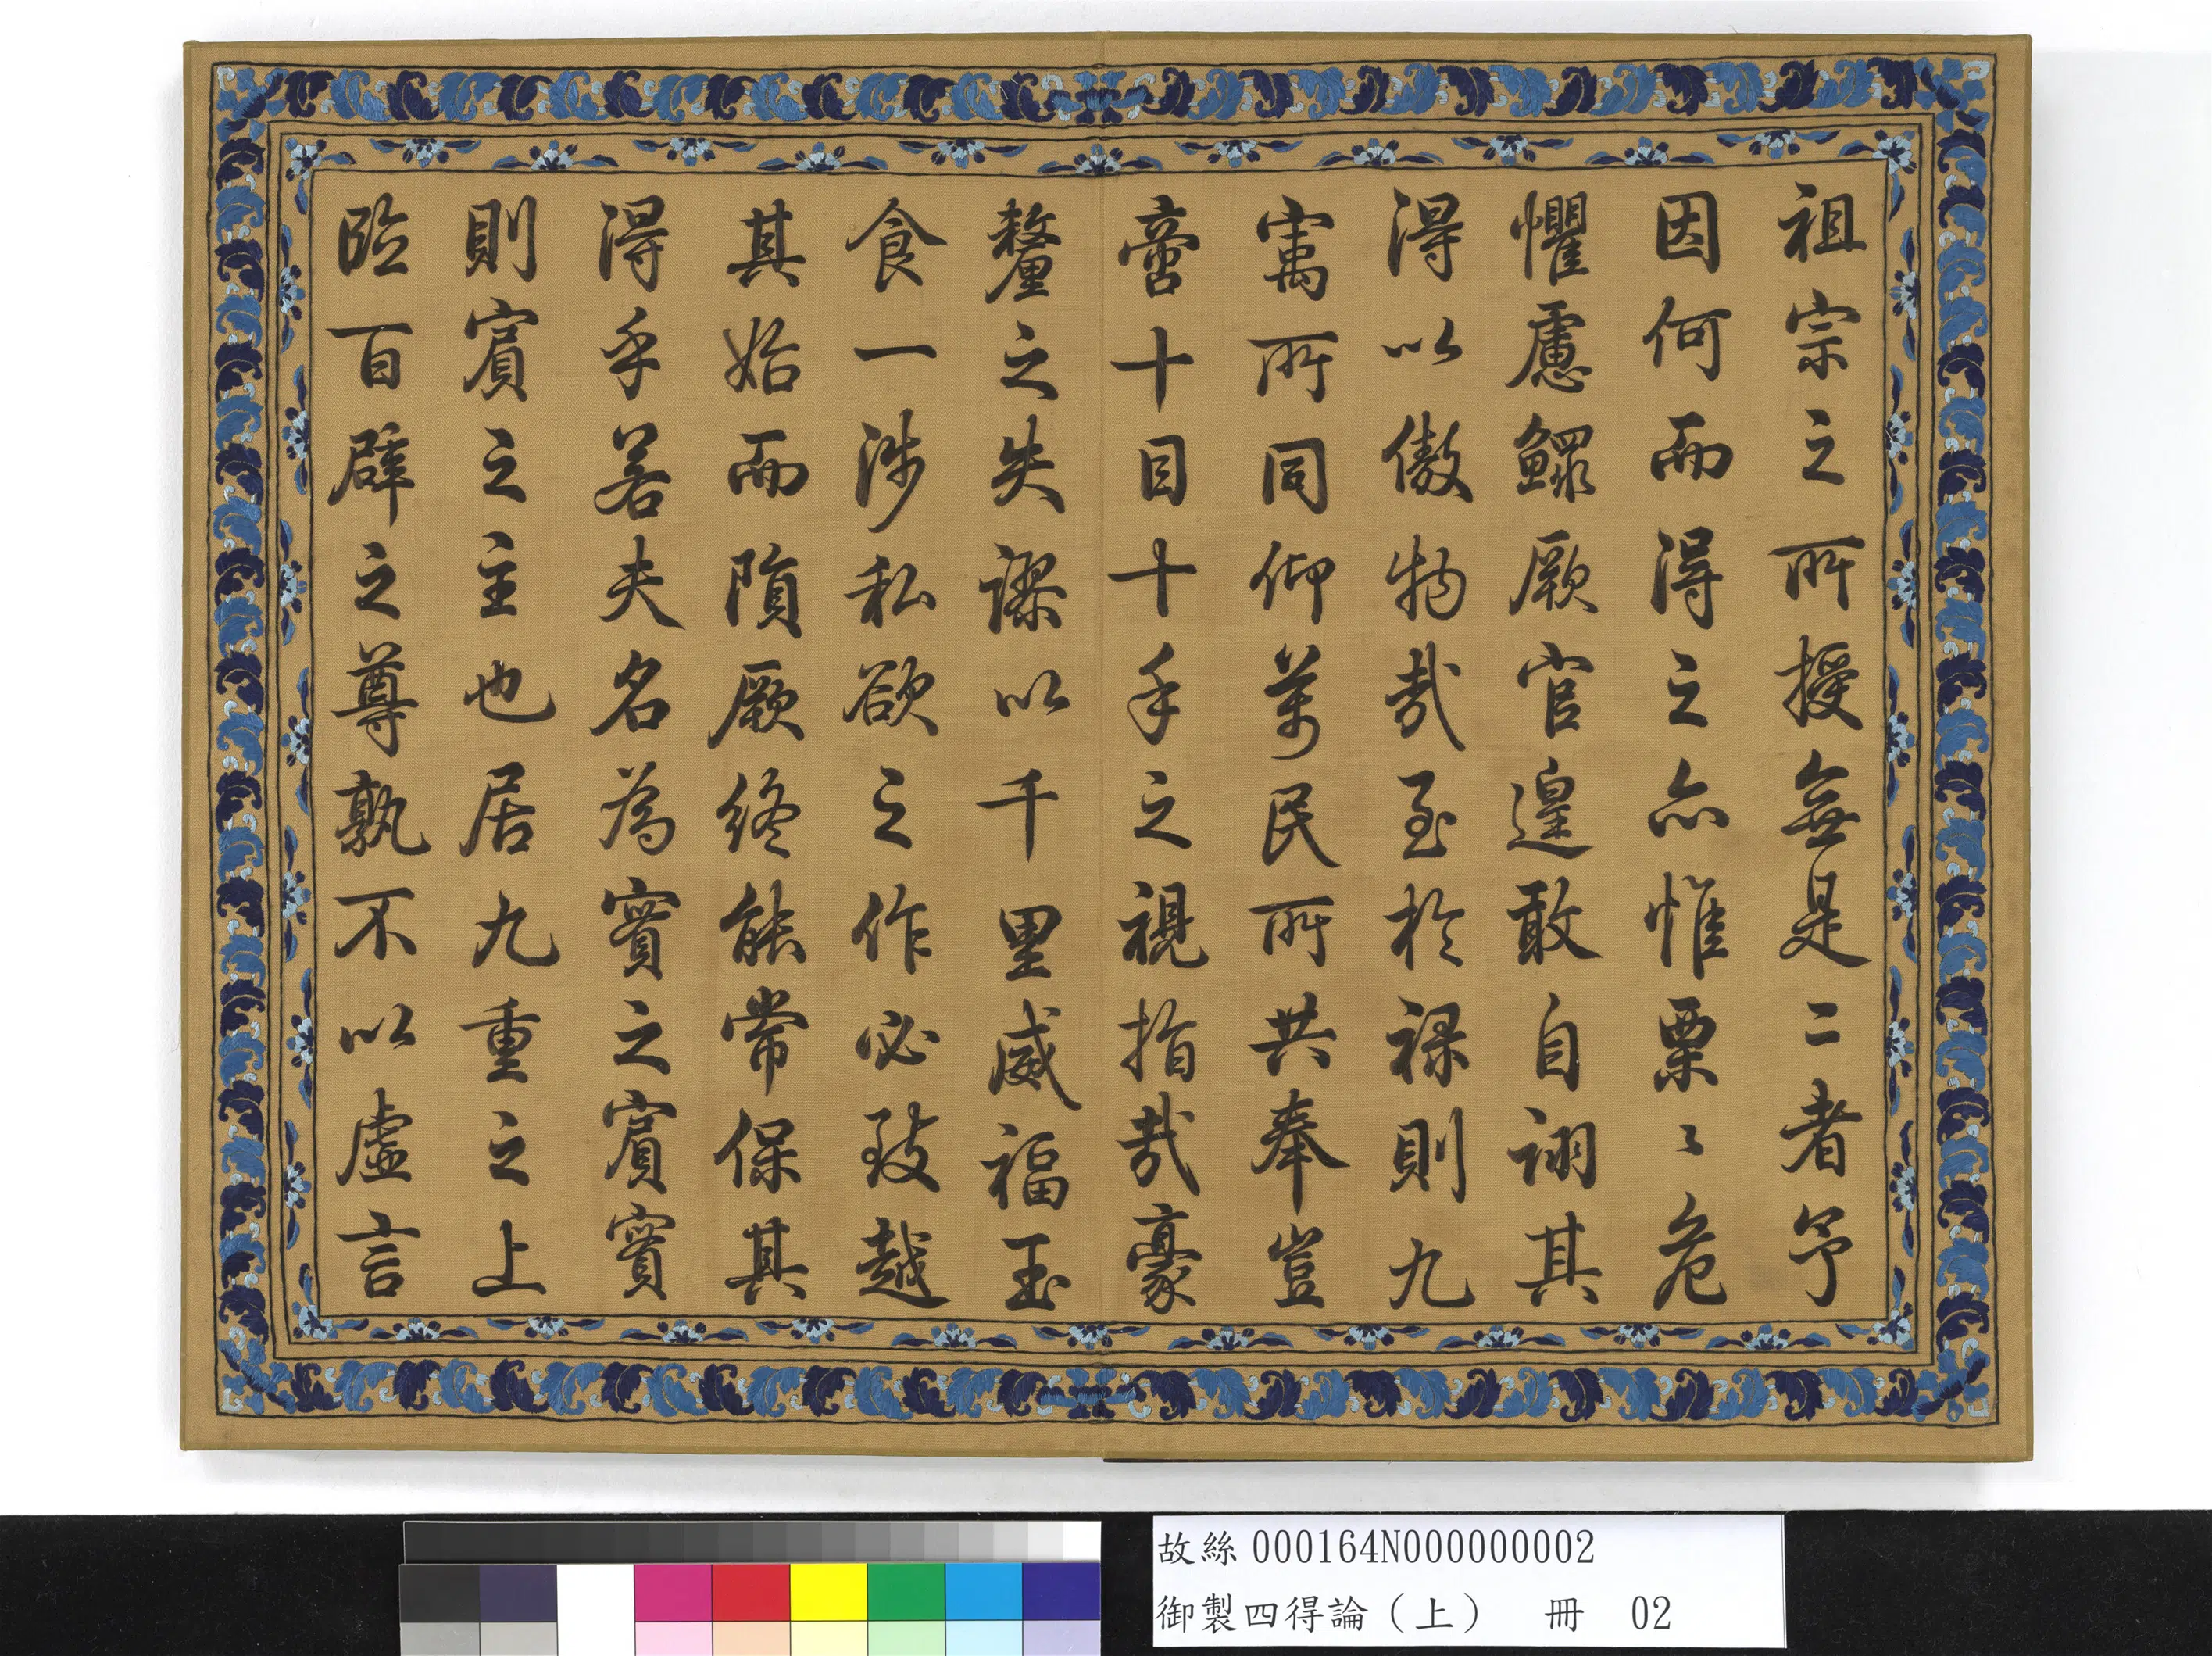 祖宗之所授無是二者予
因何而得之亦惟栗〻危
懼慮鰥厥官遑敢自詡其
得以傲物哉至於祿則九
㝢所同仰萬民所共奉豈
啻十目十手之視指哉豪
釐之失謬以千里威福玉
食一涉私欲之作必致越
其始而隕厥終能常保其
得乎若夫名為實之賓實
則賓之主也居九重之上
臨百辟之尊孰不以虛言
故絲000164N000000002
御製四得論（上） 冊 02